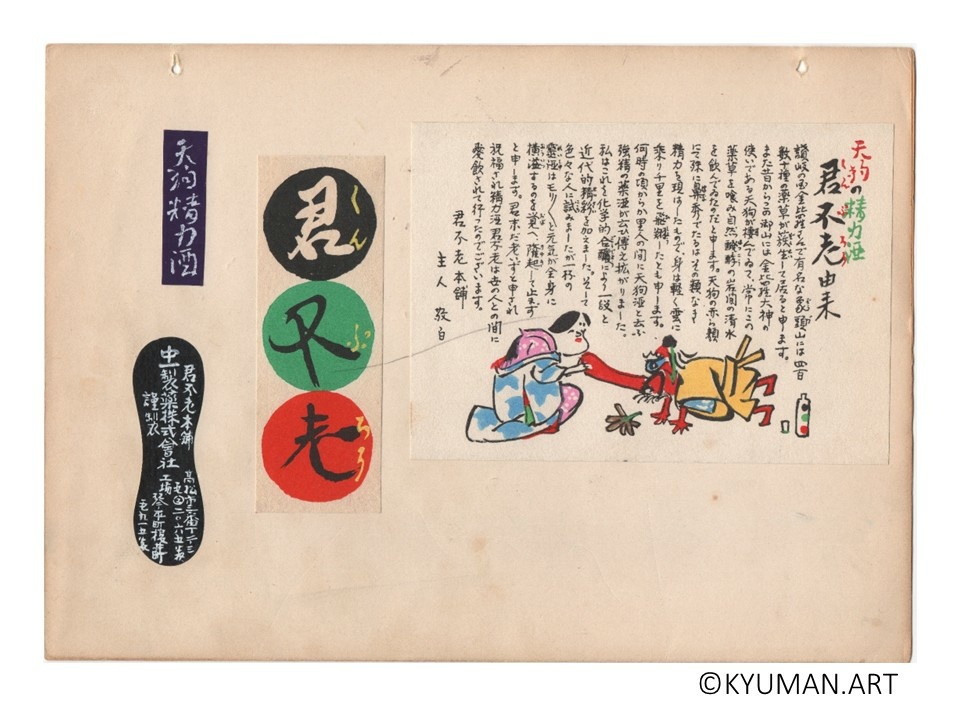 天狗の精力酒
君不老由来
讃岐の国金比羅さんで有名な象頭山には四百
数十種の薬草が簇生して居ると申します。
また昔からこの御山には金比羅大神の
使いである天狗が棲んでゐて、常にこの
薬草を喰み自然醗酵の岩間の清水
を飲んでゐたのだと申します。天狗の赤ら顔
にて殊に鼻秀でたるはその類なき
精力を現はしたもので身は軽く雲に
乗り千里を飛翔したとも申します。
何時の頃からか里人の間に天狗酒と云ふ
強精の薬酒が云ひ傳え拡がりました。
私はこれを化学的により一段と
近代的を加えました。そして
色々な人に試みましたが一杯の
靈酒はモリ〱と元気が全身に
横溢するのを覚へ隆起して止まず
と申します。君未だ老いずと申され
祝福され精力酒君不老は世の人との間に
愛飲されて行ったのでございます。
君不老本舗
主人敬白
君 くん
不 ぷ
老 ろう
天狗精力酒
君不老本舗
製薬株式會社
謹製
高松市
工場 琴平町
©KYUMAN.ART